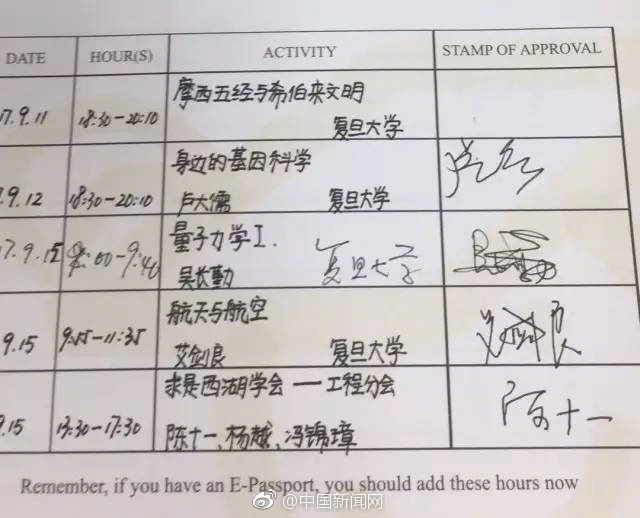 DATE HOUR(S) ACTIVITY STAMP OF APPROVAL
摩西五经与希伯来文明
17.9.11 18:30-20:10 复旦大学
身边的基因科学
.9.12 18:30-20:10 卢大儒 复旦大学
量子力学I.
17.9.15 8:00-9:40 吴长勤 复旦大学
航天与航空
9.15 9:55-11:35 艾剑良 复旦大学
求是西湖学会——工程分会
.15 13:30-17:30 陈十一、杨越、冯锦璋
陈十一
Remember, if you have an E-Passport, you should add these hours now
@中国新闻网